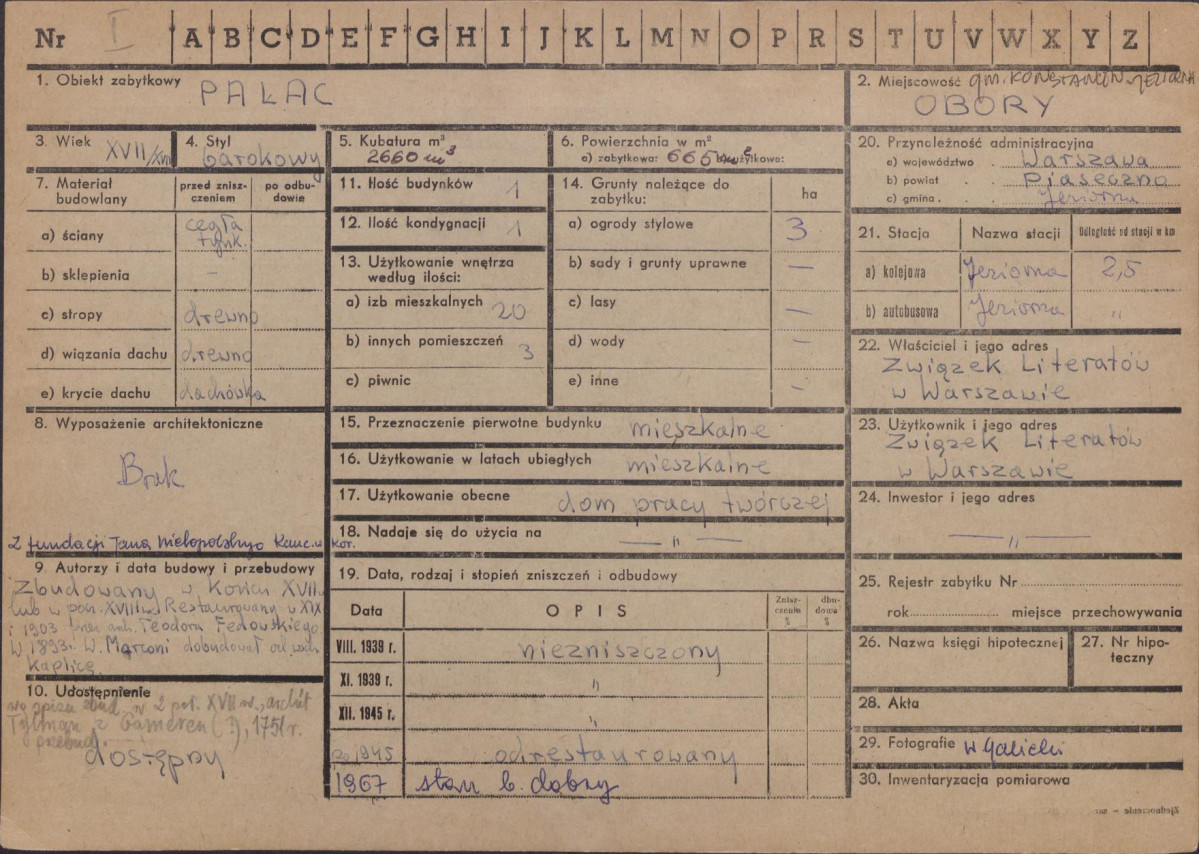 Nr I A B C D E F G H I J K L M N O P R S T U V W X Y Z
1. Obiekt zabytkowy PAŁAC
2. Miejscowość gm. KONSTANCIN-JEZIORNA
OBORY
3. Wiek XVII/XVIII
4. Styl barokowy
5. Kubatura m³
2660 m³
6. Powierzchnia w m²
a) zabytkowa: 665 m² b) użytkowa:
7. Materiał budowlany
przed zniszczeniem
po odbudowie
a) ściany cegła tynk.
b) sklepienia –
c) stropy drewno
d) wiązania dachu drewno
e) krycie dachu dachówka
8. Wyposażenie architektoniczne
Brak
Z fundacji Jana Wielopolskiego Kanc. w. kor.
9. Autorzy i data budowy i przebudowy
Zbudowany w końcu XVII
lub w poł. XVIII w. Restaurowany w XIX
i 1903 przez arch. Teodora
W 1893 r. W. Marconi dobudował od wsch.
kaplicę
10. Udostępnienie
wg spisu zbud. w 2 poł. XVII w., archit
Tylman z Gameren (?), 1751 r.
przebud.
dostępny
11. Ilość budynków 1
12. Ilość kondygnacji 1
13. Użytkowanie wnętrza
według ilości:
a) izb mieszkalnych 20
b) innych pomieszczeń 3
c) piwnic
14. Grunty należące do
zabytku:
ha
a) ogrody stylowe 3
b) sady i grunty uprawne —
c) lasy —
d) wody –
e) inne –
15. Przeznaczenie pierwotne budynku mieszkalne
16. Użytkowanie w latach ubiegłych mieszkalne
17. Użytkowanie obecne dom pracy twórczej
18. Nadaje się do użycia na — " —
19. Data, rodzaj i stopień zniszczeń i odbudowy
Data OPIS Zniszczenie % dbudowa %
VIII. 1939 r. niezniszczony
XI. 1939 r. "
XII. 1945 r. "
po 1945 odrestaurowany
1967 stan b. dobry
20. Przynależność administracyjna
a) województwo . Warszawa
b) powiat . . Piaseczno
c) gmina . . . Jeziorna
21. Stacja Nazwa stacji Odległość od stacji w km
a) kolejowa Jeziorna 2,5
b) autobusowa Jeziorna "
22. Właściciel i jego adres
Związek Literatów
w Warszawie
23. Użytkownik i jego adres
Związek Literatów
w Warszawie
24. Inwestor i jego adres
— " —
25. Rejestr zabytku Nr
rok miejsce przechowywania
26. Nazwa księgi hipotecznej
27. Nr hipoteczny
28. Akta
29. Fotografie W Galicki
30. Inwentaryzacja pomiarowa